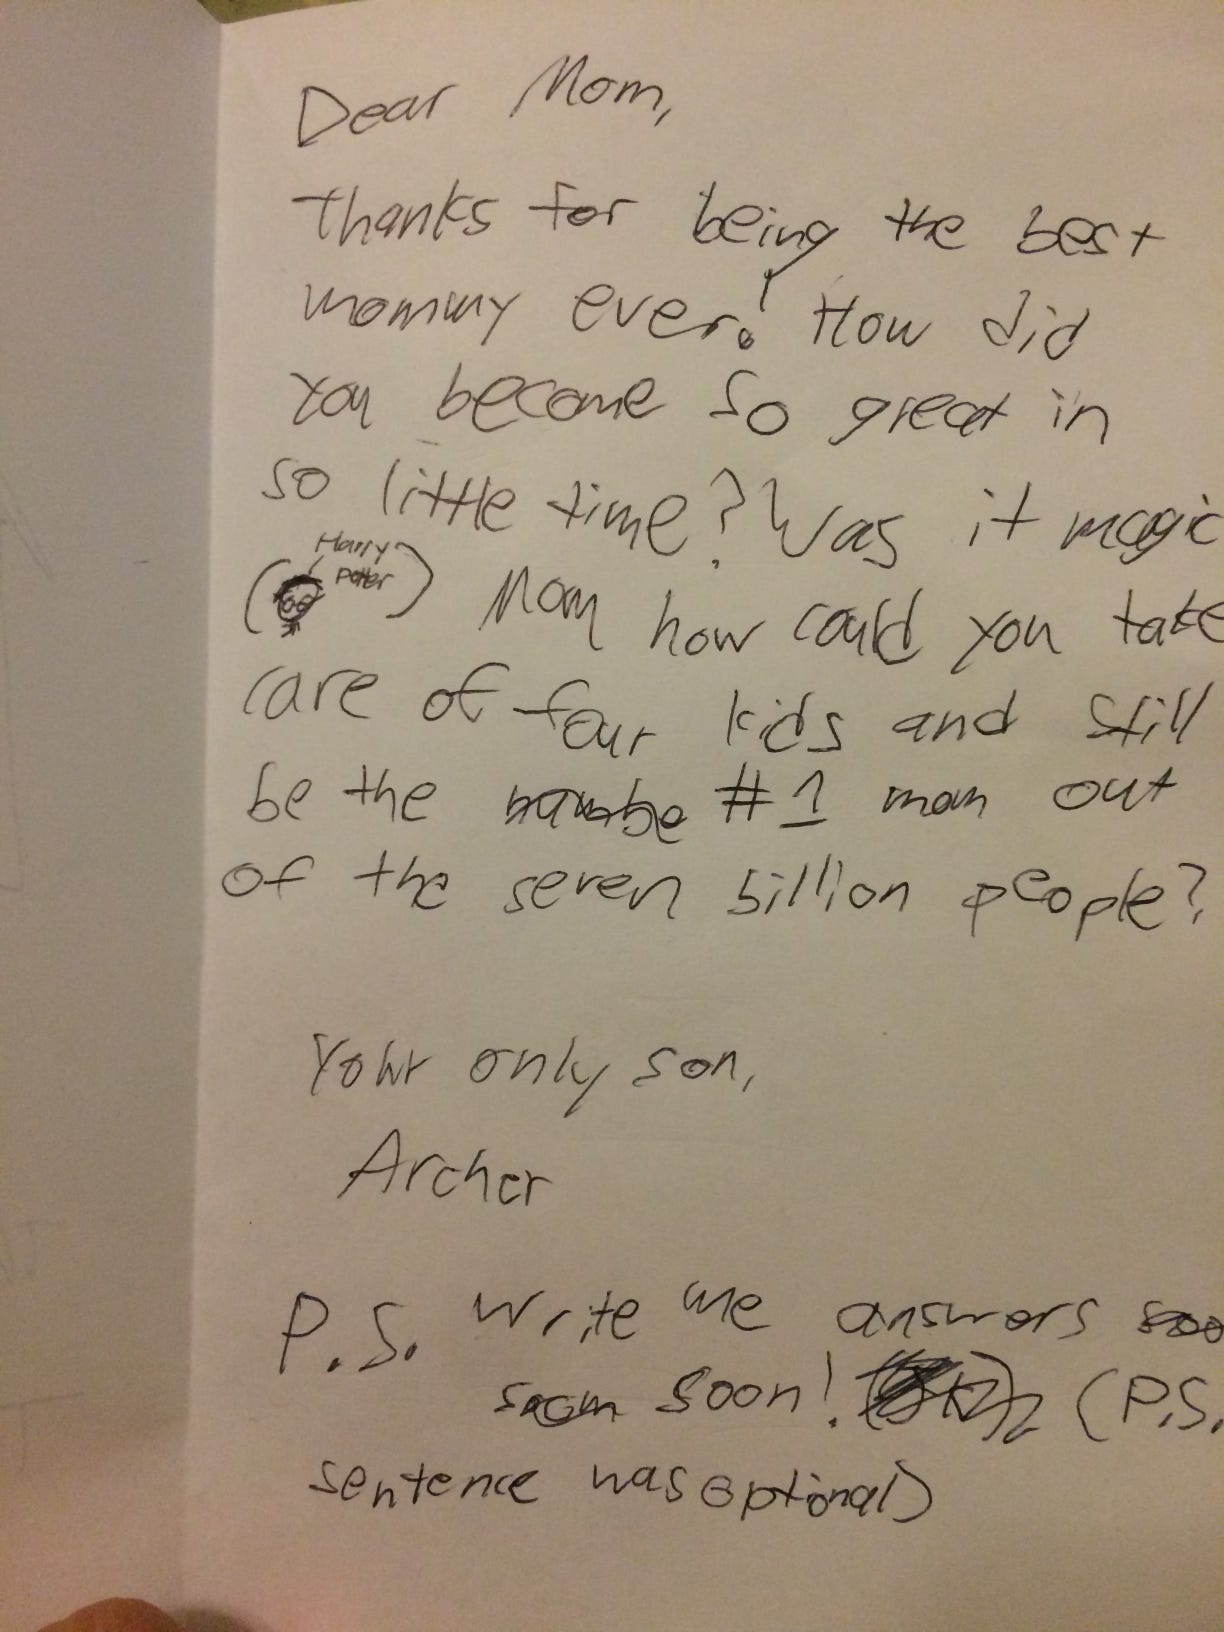 Dear Mom,
Thanks for being the best
mommy ever! How did
you become so great in
so little time? Was it magic
(Harry
Potter)
Mom how could you take
care of four kids and still
be the numbe #1 mom out
of the seven billion people?
Your only son,
Archer
P.S. Write me answers soo
soon soon! (P.S.
sentence was optional)